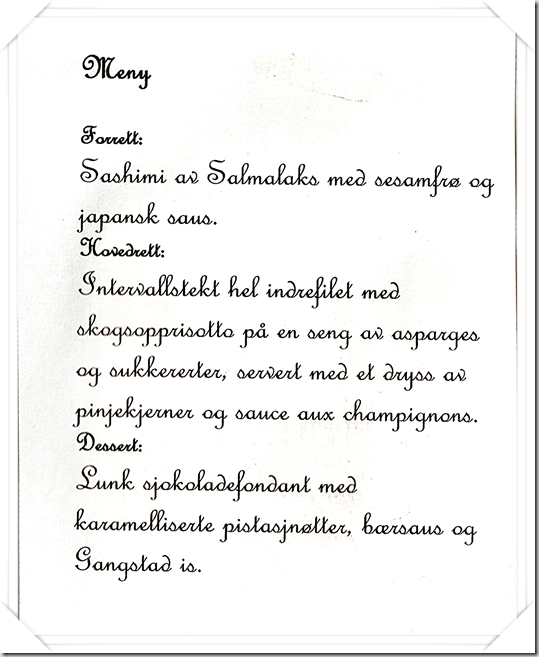 Meny
Forrett:
Sashimi av Salmalaks med sesamfrø og
japansk saus.
Hovedrett:
Intervallstekt hel indrefilet med
skogsopprisotto på en seng av asparges
og sukkererter, servert med et dryss av
pinjekjerner og sauce aux champignons.
Dessert:
Lunk sjokoladefondant med
karamelliserte pistasjnøtter, bærsaus og
Gangstad is.